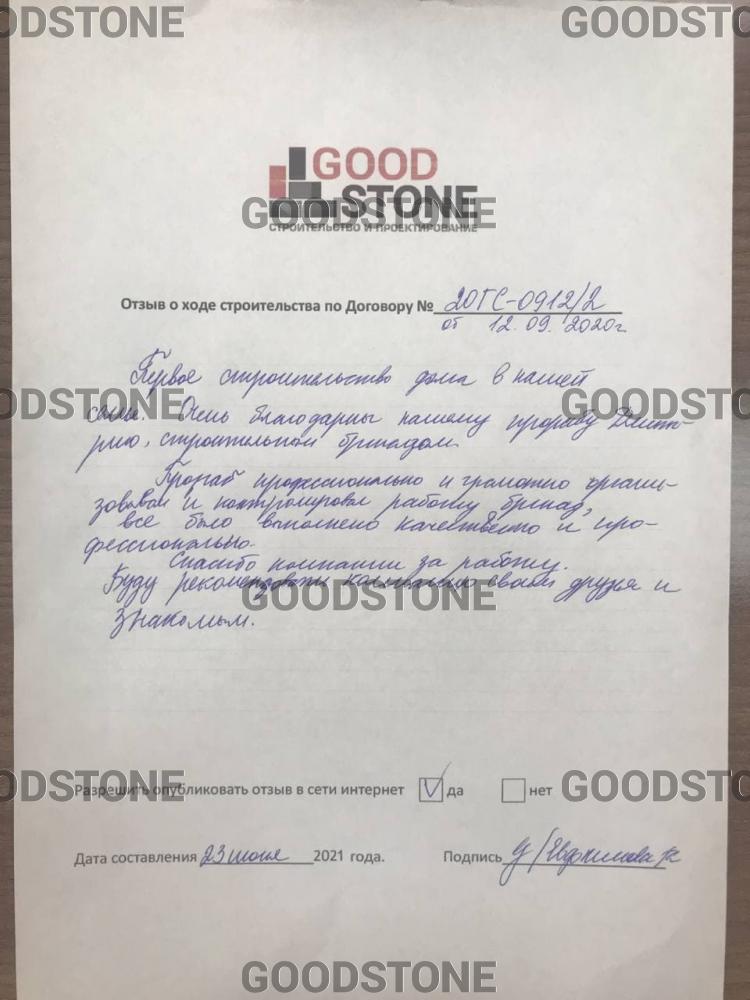 GOODSTONE
GOODSTONE
GOOD
STONE
GOODSTONE
СТРОИТЕЛЬСТВО И ПРОЕКТИРОВАНИЕ
Отзыв о ходе строительства по Договору № 20ГС-0912/2
от 12.09.2020г
Первое строительство дома в нашей
GOODSTONE
GOODSTONE
семье. Очень благодарны нашему прорабу Дмит-
рию, строительной бригадом.
Прораб профессионально и грамотно органи-
зовывал и контролировал работу бригад,
все было выполнено качествено и про-
фессионально.
Спасибо компании за работу.
Буду рекомендовать компанию своим друзья и
GOODSTONE
знакомым.
GOODSTONE
GOODSTONE
Разрешить опубликовать отзыв в сети интернет V да нет
Дата составления 23 июня 2021 года. Подпись
GOODSTONE